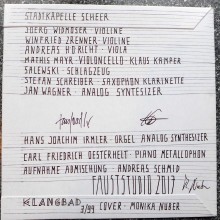 STADTKAPELLE SCHEER
JOERG WIDMOSER VIOLINE
WINFRIED ZRENNER VIOLINE
ANDREAS HÖRICHT VIOLA
MATHIS MAYR VIOLONCELLO KLAUS KÄMPER
SALEWSKI SCHLAGZEUG
STEFAN SCHREIBER SAXOPHON KLARINETTE
JAN WAGNER ANALOG SYNTESIZER
HANS JOACHIM IRMLER ORGEL ANALOG SYNTHESIZER
CARL FRIEDRICH OESTERHELT PIANO METALLOPHON
AUFNAHME ABMISCHUNG ANDREAS SCHMID
FAUSTSTUDIO 2013
KLANGBAD
3/99 COVER MONIKA NUBER